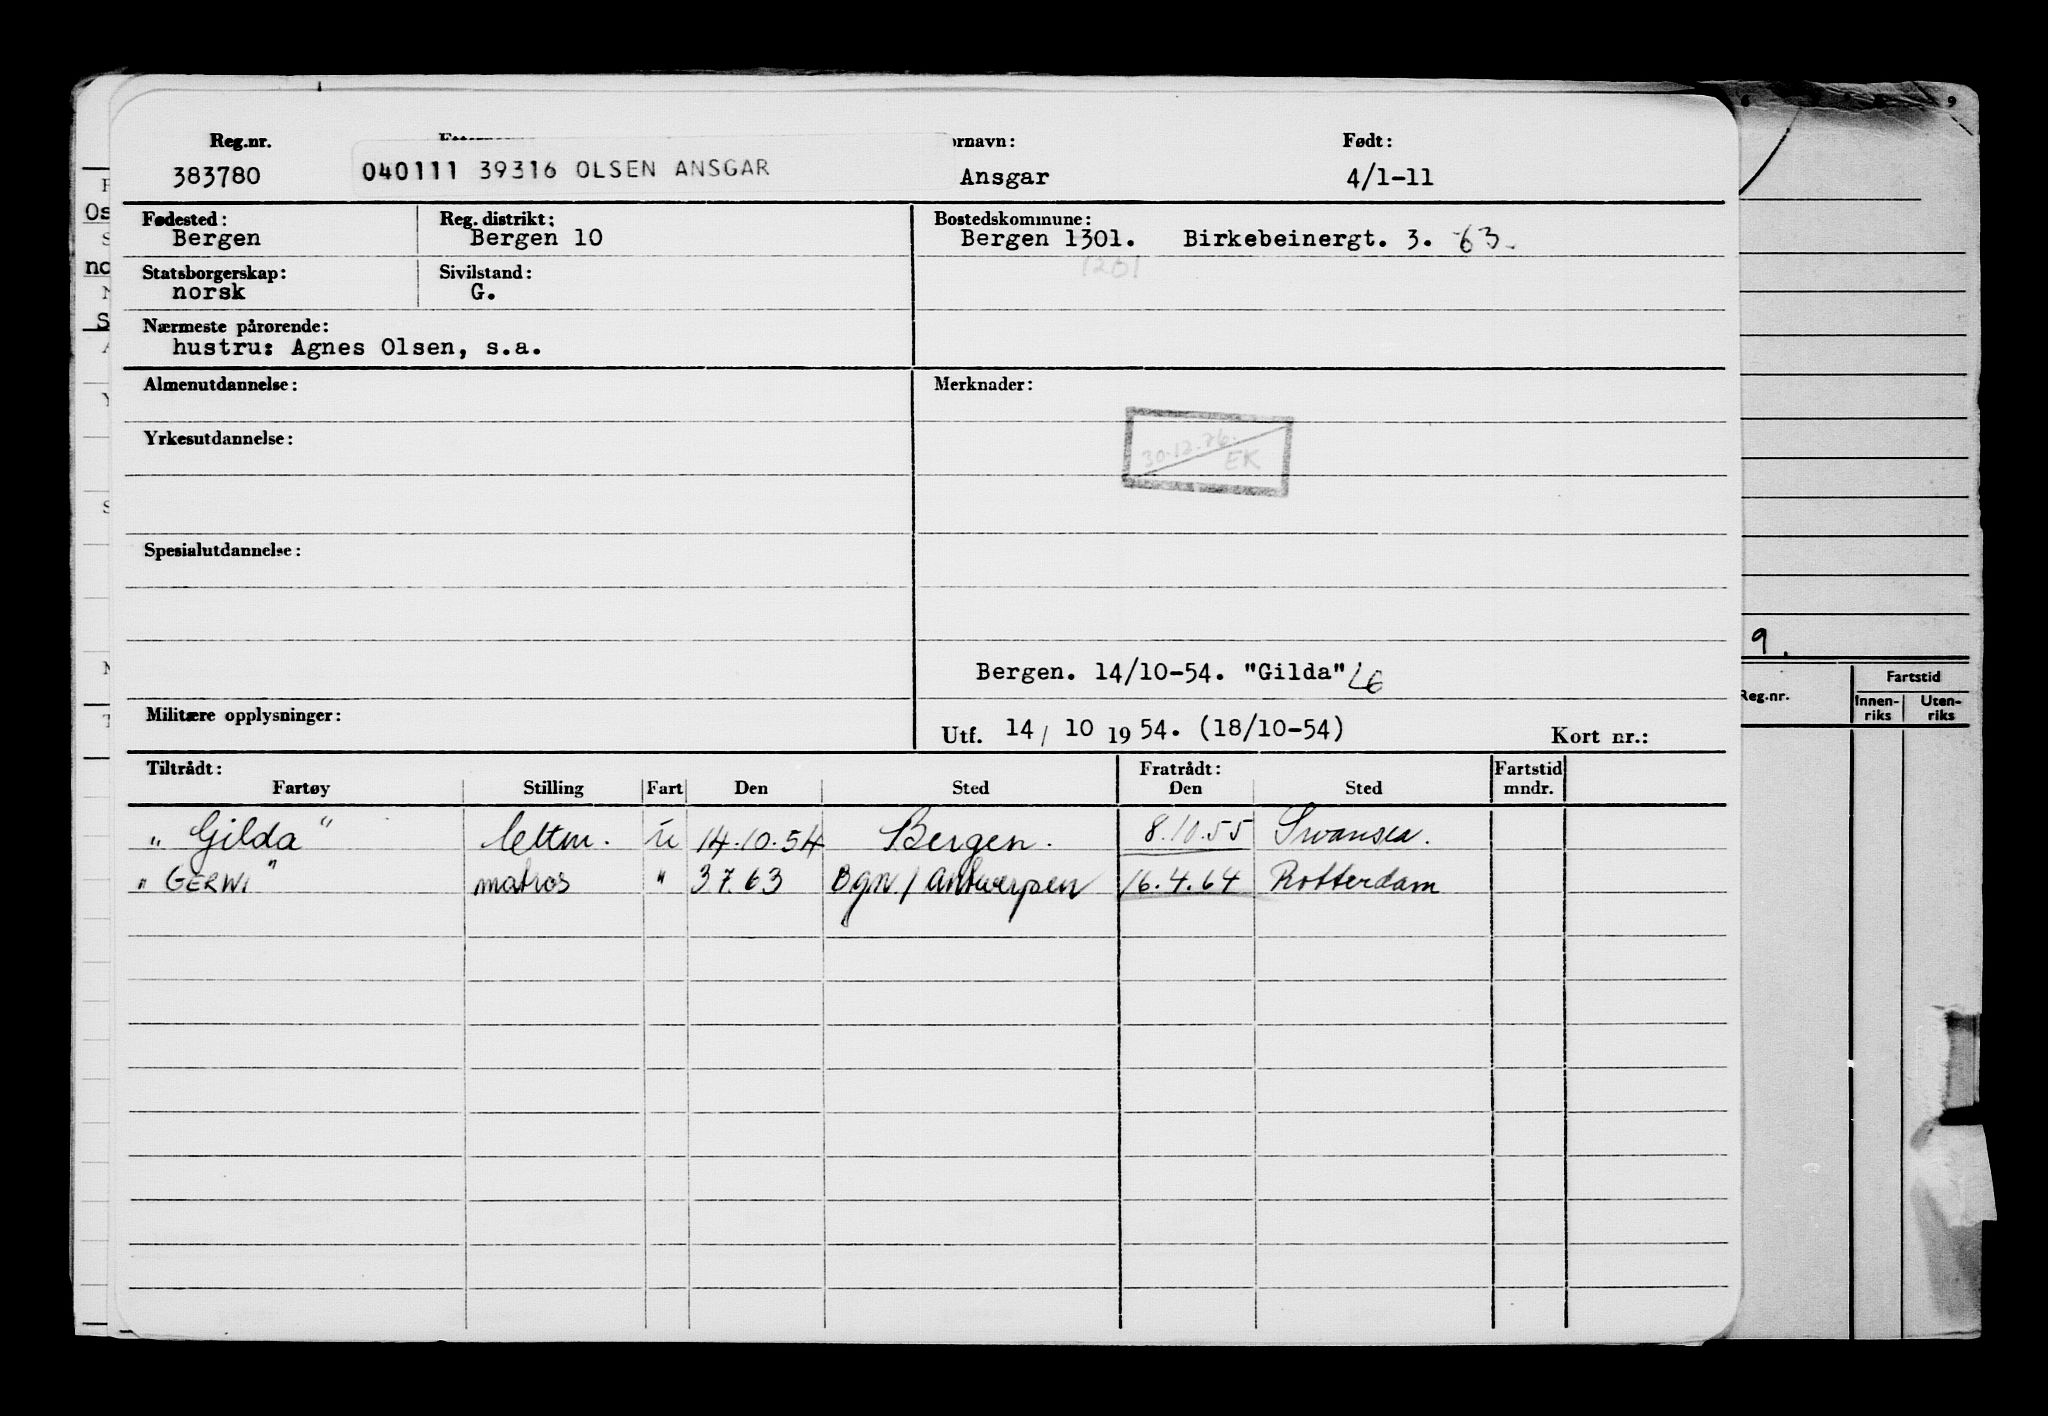 Reg.nr. ornavn: Født:
383780 040111 39316 OLSEN ANSGAR Ansgar 4/1-11
Fødested: Reg. distrikt: Bostedskommune:
Bergen Bergen 10 Bergen 1301. Birkebeinergt. 3. -63.
1201
Statsborgerskap: Sivilstand:
norsk G.
Nærmeste pårørende:
hustru: Agnes Olsen, s.a.
Almenutdannelse: Merknader:
30.12.76. EK
Yrkesutdannelse:
Spesialutdannelse:
Bergen. 14/10-54. "Gilda" LG
Militære opplysninger:
Utf. 14/ 10 1954. (18/10-54) Kort nr.:
Tiltrådt: Fratrådt: Fartstid
Fartøy Stilling Fart Den Sted Den Sted mndr.
"Gilda" lettm. u 14.10.54 Bergen. 8.10.55 Swansea.
"GERWI" matros " 3 7. 63 Bgn./ Antwerpen 16.4.64 Rotterdam
9
9.
Reg.nr. Fartstid
Innen-riks Uten-riks
Os
no